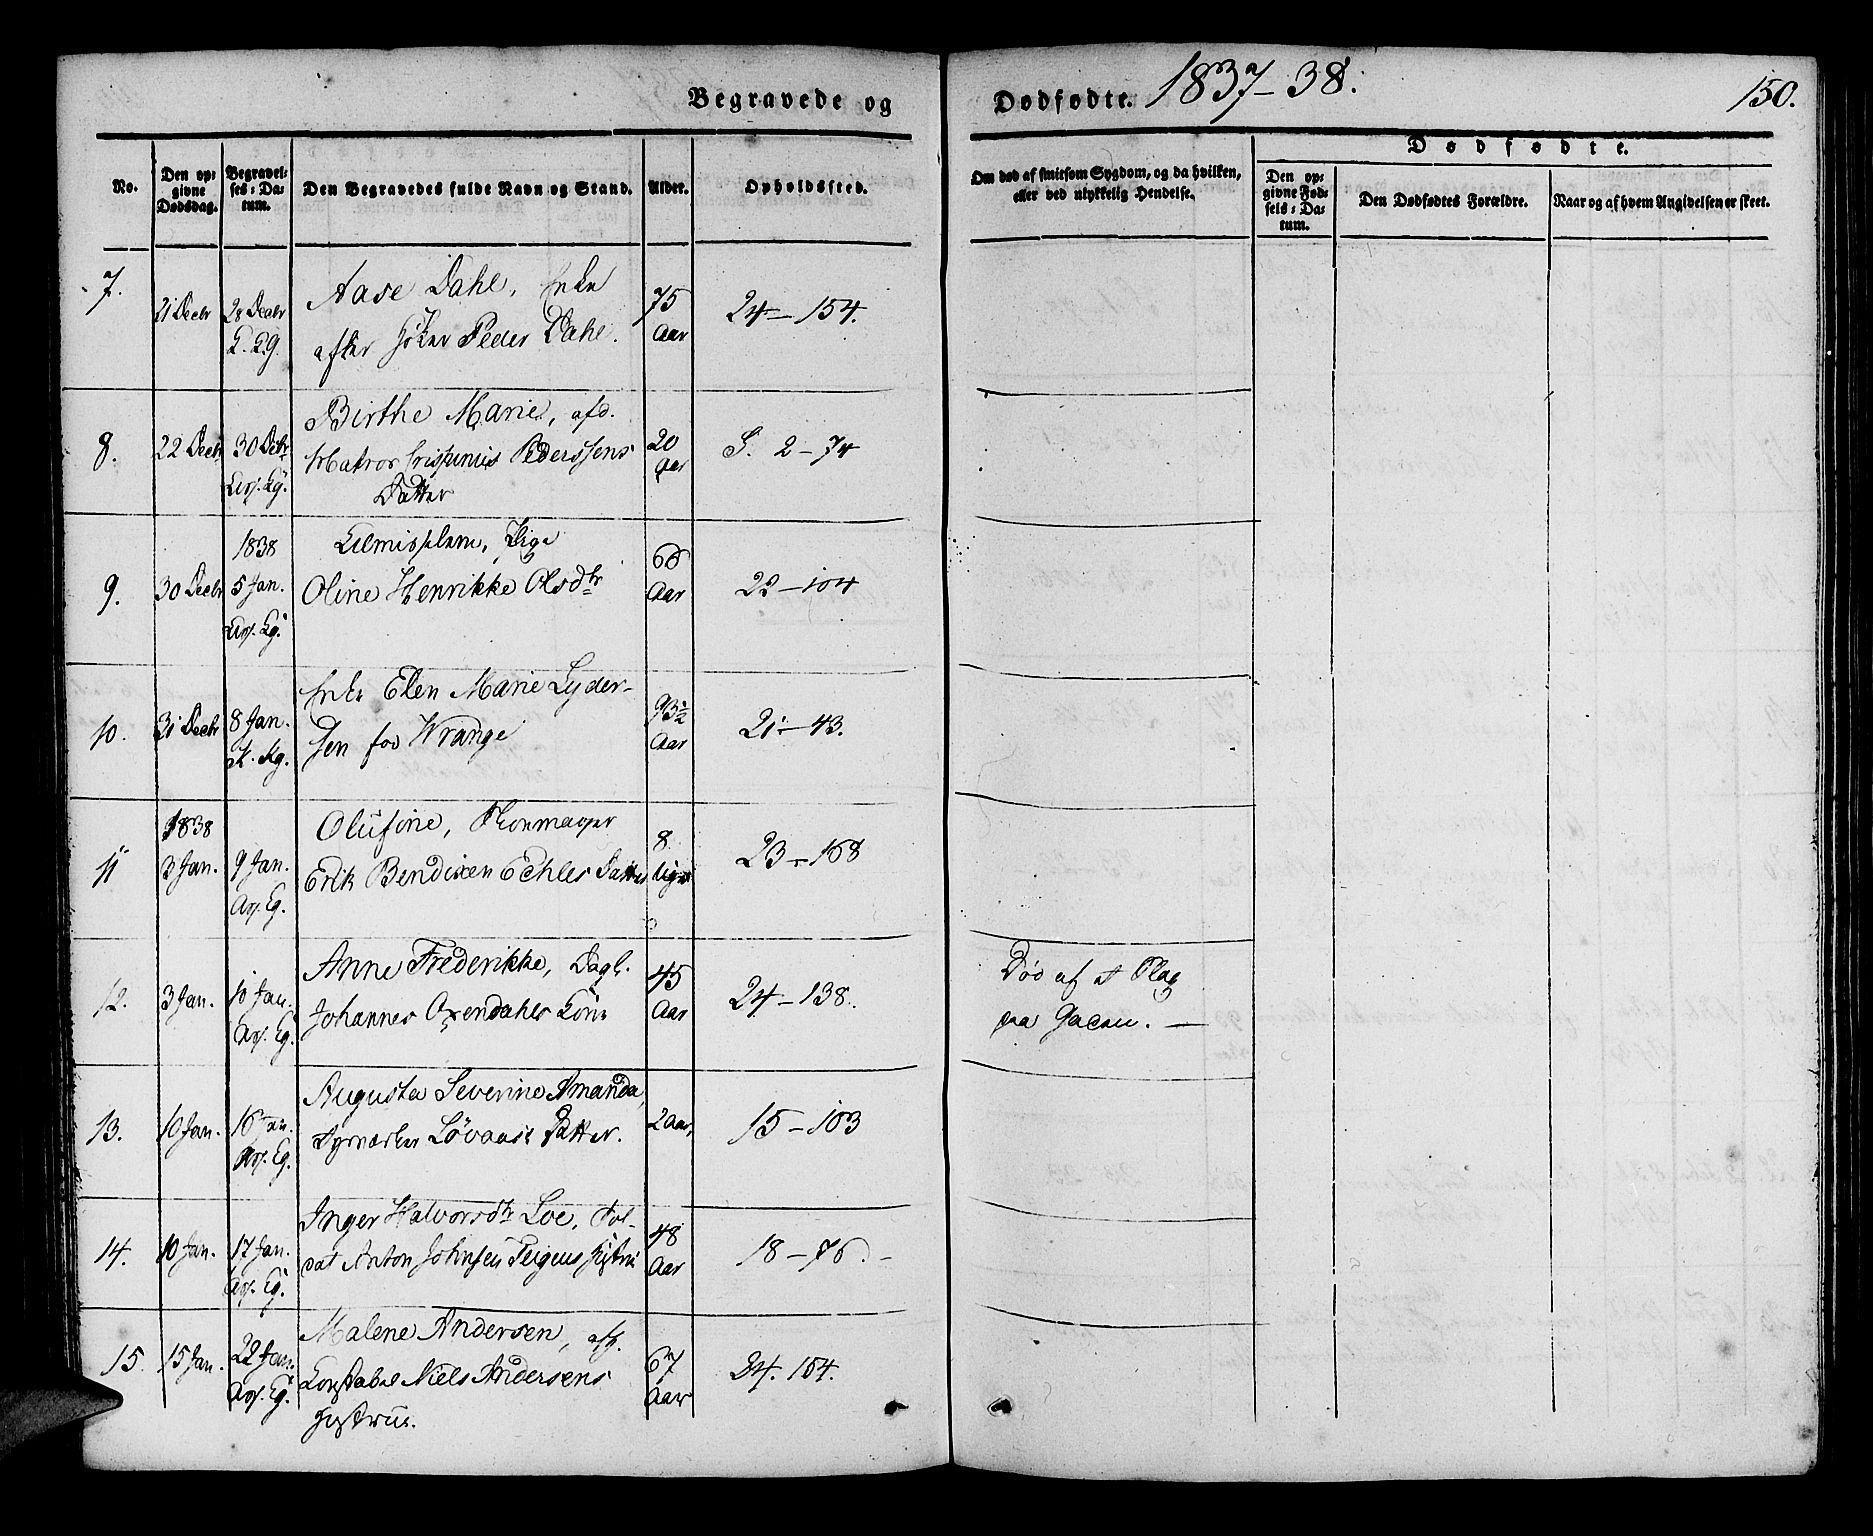 Begravede og Dødfødte. 1837-38. 150.
No. | Den opgivne Dødsdag. | Begravelses-Datum. | Den Begravedes fulde Navn og Stand. | Alder. | Opholdssted. | Om død af smitsom Sygdom, og da hvilken, eller ved ulykkelig Hendelse. | Dødfødte.
Den opgivne Fødsels-Datum. | Den Dødfødtes Forældre. | Naar og af hvem Angivelsen er skeet.
7.
Aase Dahl, Enke
21 Decbr 28 Decbr 75 24-154.
efter Peder Dahl. Aar
Birthe Marie, afd.
8. 22 Decbr 30 Decbr Matros Pederssens 20 S. 2-74
Aar
Datter
1838 Pige 66
9. 30 Decbr 5 Jan. Oline Henrikke Olsdtr Aar 22-104
Enke Elen Marie Lyder-
10. 31 Decbr 8 Jan. sen fød Wrange 93½ Aar 21-43.
1838 Olufine,
11 3 Jan. 9 Jan. Erik Bendixen Datter 8 23-168
Anne Frederikke, Dagl.
12. 3 Jan. 10 Jan. Johannes Oxendahls Kone 45 Aar 24-138. Død af et Slag
paa Gaden.
Augusta Severine Amanda,
13. 10 Jan. 16 Jan. Løvaas's Datter. 2 Aar, 15-103
Inger Halvorsdtr Loe, Sol-
14. 10 Jan. 17 Jan. dat Anton Johnsen Hustru 48 Aar 18-76.
Malene Andersen,
15. 15 Jan. 22 Jan. Constabel Niels Andersens 67 Aar 24. 154.
Hustrue.